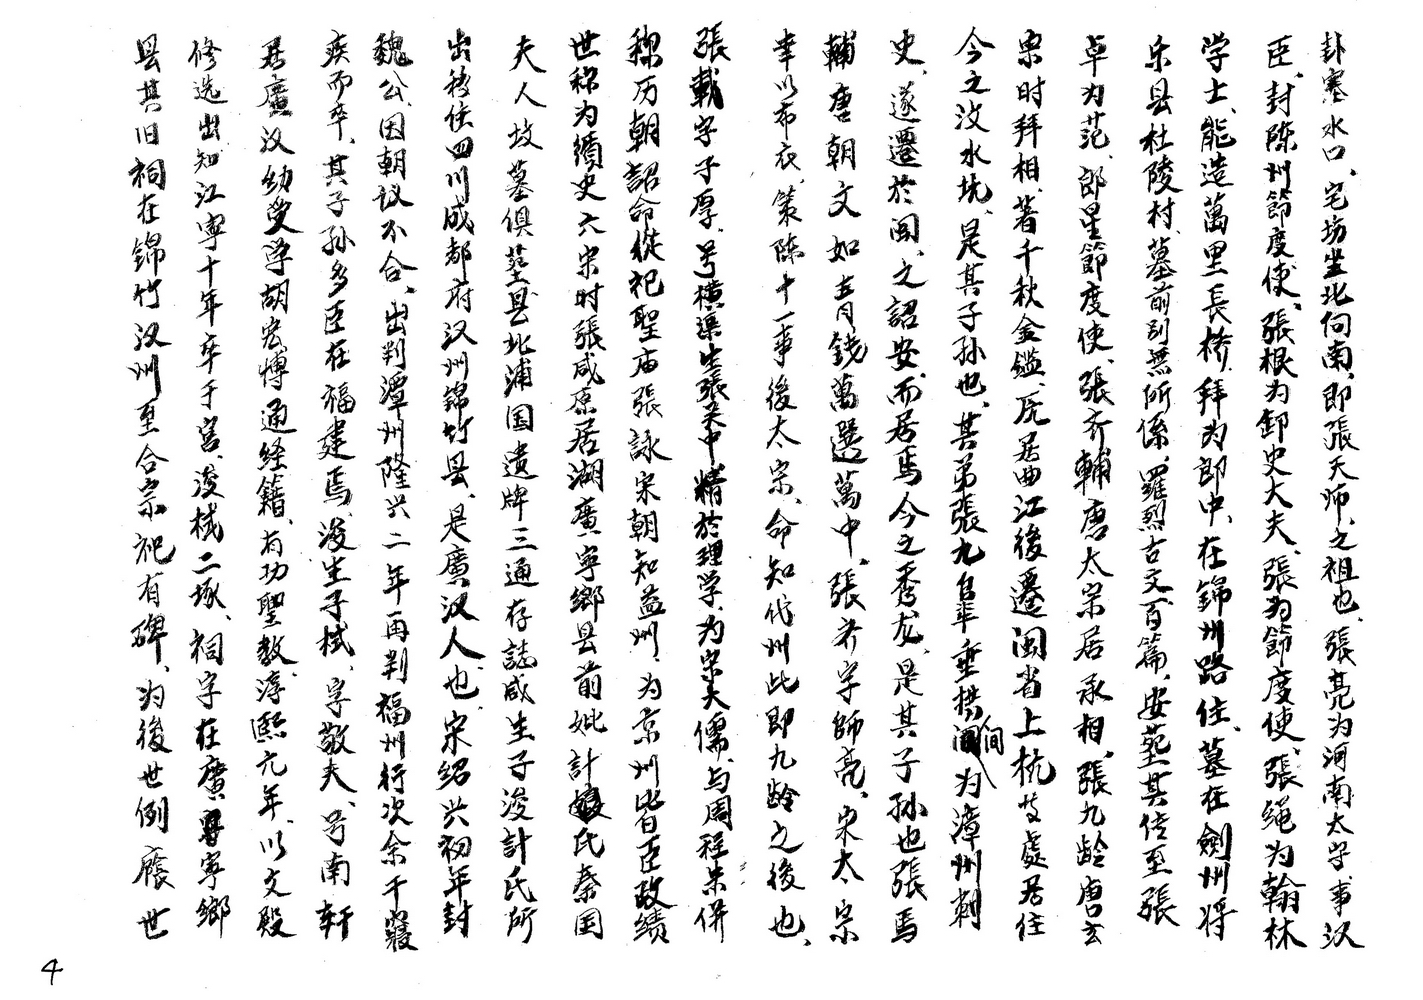 卦寨水口、宅场坐北向南、即張天师之祖也、張亮为河南太守事汉
臣、封陈州節度使、張根为卸史大夫、張为節度使、張绳为翰林
学士、能造萬里長桥、拜为郎中、在錦州路住、墓在劍州将
乐县杜陵村、墓前别無所係、羅烈古文百篇、安葬其位至張
卓为范、郎星節度使、張齐輔唐太宗居承相、張九龄唐玄
宗时拜相、著千秋金鑑、厐居曲江後遷闽省上杭 處居住
今之汶水坑、是其子孙也、其弟張九皐垂拱间为漳州刺
史、遂遷於闽、之詔安、而居焉今之秀龙、是其子孙也張馬
輔唐朝文如青钱萬選萬中、張齐字師亮、宋太宗
幸以布衣、策陈十一事後太宗、命知代州此即九龄之後也、
張載字子厚、号横渠生張关中、精於理学、为宋大儒、与周程朱併
称历朝詔命從祀聖庙張詠宋朝知益州、为京州皆臣政绩
世称为循史六宋时張咸原居湖廣寧鄉县前妣計 氏秦国
夫人坟墓俱葬县北浦国遗牌三通存誌咸生子浚計氏所
出移住四川成都府汉州錦竹县、是廣汉人也、宋绍兴初年封
魏公、因朝议不合、出判潭州隆兴二年再判福州行次余干寢
疾而卒、其子孙多臣在福建焉、浚生子栻、字敬夫、号南轩
居廣汉幼受学胡宏博通经籍、有功聖教淳熙元年、以文殿
修选出知江寧十年卒于宫、浚栻二塚、祠字在廣寧鄉
县其旧祠在錦竹汉州至合宗祀有碑、为後世例 世
4